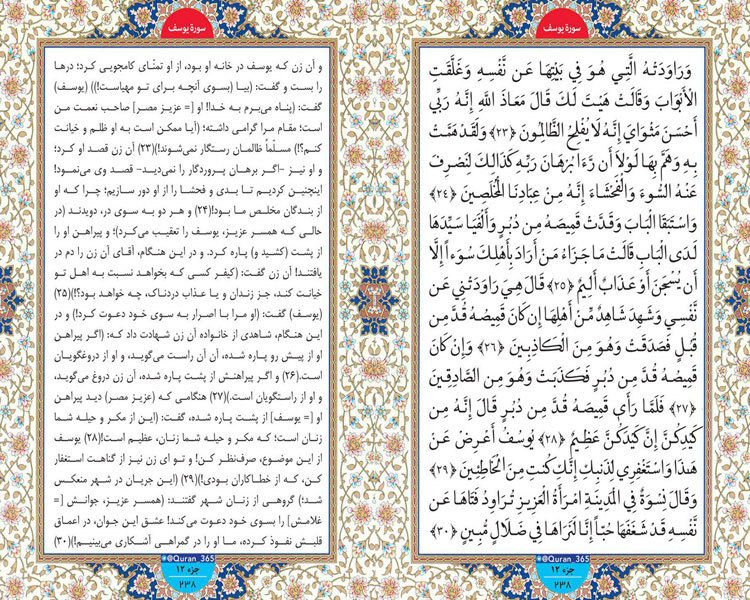 سورة یوسف
وَرَاوَدَتْهُ الَّتِي هُوَ فِي بَيْتِهَا عَن نَّفْسِهِ وَغَلَّقَتِ
الْأَبْوَابَ وَقَالَتْ هَيْتَ لَكَ قَالَ مَعَاذَ اللَّهِ إِنَّهُ رَبِّي
أَحْسَنَ مَثْوَايَ إِنَّهُ لَا يُفْلِحُ الظَّالِمُونَ ﴿٢٣﴾ وَلَقَدْ هَمَّتْ
بِهِ وَهَمَّ بِهَا لَوْلَا أَن رَّءَا بُرْهَانَ رَبِّهِ كَذَالِكَ لِنَصْرِفَ
عَنْهُ السُّوءَ وَالْفَحْشَاءَ إِنَّهُ مِنْ عِبَادِنَا الْمُخْلَصِينَ ﴿٢٤﴾
وَاسْتَبَقَا الْبَابَ وَقَدَّتْ قَمِيصَهُ مِن دُبُرٍ وَأَلْفَيَا سَيِّدَهَا
لَدَى الْبَابِ قَالَتْ مَا جَزَاءُ مَنْ أَرَادَ بِأَهْلِكَ سُوءًا إِلَّا
أَن يُسْجَنَ أَوْ عَذَابٌ أَلِيمٌ ﴿٢٥﴾ قَالَ هِيَ رَاوَدَتْنِي عَن
نَّفْسِي وَشَهِدَ شَاهِدٌ مِّنْ أَهْلِهَا إِن كَانَ قَمِيصُهُ قُدَّ مِن
قُبُلٍ فَصَدَقَتْ وَهُوَ مِنَ الْكَاذِبِينَ ﴿٢٦﴾ وَإِن كَانَ
قَمِيصُهُ قُدَّ مِن دُبُرٍ فَكَذَبَتْ وَهُوَ مِنَ الصَّادِقِينَ
﴿٢٧﴾ فَلَمَّا رَأَى قَمِيصَهُ قُدَّ مِن دُبُرٍ قَالَ إِنَّهُ مِن
كَيْدِكُنَّ إِنَّ كَيْدَكُنَّ عَظِيمٌ ﴿٢٨﴾ يُوسُفُ أَعْرِضْ عَنْ
هَذَا وَاسْتَغْفِرِي لِذَنبِكِ إِنَّكِ كُنتِ مِنَ الْخَاطِئِينَ ﴿٢٩﴾
وَقَالَ نِسْوَةٌ فِي الْمَدِينَةِ امْرَأَةُ الْعَزِيزِ تُرَاوِدُ فَتَاهَا عَن
نَّفْسِهِ قَدْ شَغَفَهَا حُبًّا إِنَّا لَنَرَاهَا فِي ضَلَالٍ مُّبِينٍ ﴿٣٠﴾
@Quran_365
جزء ۱۲
۲۳۸
سورة یوسف
و آن زن که یوسف در خانه او بود، از او تمنّای کامجویی کرد؛ درها
را بست و گفت: (بیا (بسوی آنچه برای تو مهیاست!)) (یوسف)
گفت: (پناه می‌برم به خدا! او [= عزیز مصر] صاحب نعمت من
است؛ مقام مرا گرامی داشته؛ (آیا ممکن است به او ظلم و خیانت
کنم؟!) مسلّماً ظالمان رستگار نمی‌شوند!)(۲۳) آن زن قصد او کرد؛
و او نیز -اگر برهان پروردگار را نمی‌دید- قصد وی می‌نمود!
اینچنین کردیم تا بدی و فحشا را از او دور سازیم؛ چرا که او
از بندگان مخلص ما بود!(۲۴) و هر دو به سوی در، دویدند (در
حالی که همسر عزیز، یوسف را تعقیب می‌کرد)؛ و پیراهن او را
از پشت (کشید و) پاره کرد. و در این هنگام، آقای آن زن را دم در
یافتند! آن زن گفت: (کیفر کسی که بخواهد نسبت به اهل تو
خیانت کند، جز زندان و یا عذاب دردناک، چه خواهد بود؟!)(۲۵)
(یوسف) گفت: (او مرا با اصرار به سوی خود دعوت کرد!) و در
این هنگام، شاهدی از خانواده آن زن شهادت داد که: (اگر پیراهن
او از پیش رو پاره شده، آن آن راست می‌گوید، و او از دروغگویان
است.(۲۶) و اگر پیراهنش از پشت پاره شده، آن زن دروغ می‌گوید،
و او از راستگویان است.)(۲۷) هنگامی که (عزیز مصر) دید پیراهن
او [= یوسف] از پشت پاره شده، گفت: (این از مکر و حیله شما
زنان است؛ که مکر و حیله شما زنان، عظیم است!(۲۸) یوسف
از این موضوع، صرف‌نظر کن! و تو ای زن نیز از گناهت استغفار
کن، که از خطاکاران بودی!)(۲۹) (این جریان در شهر منعکس
شد؛) گروهی از زنان شهر گفتند: (همسر عزیز، جوانش [=
غلامش] را بسوی خود دعوت می‌کند! عشق این جوان، در اعماق
قلبش نفوذ کرده، ما او را در گمراهی آشکاری می‌بینیم!)(۳۰)
@Quran_365
جزء ۱۲
۲۳۸